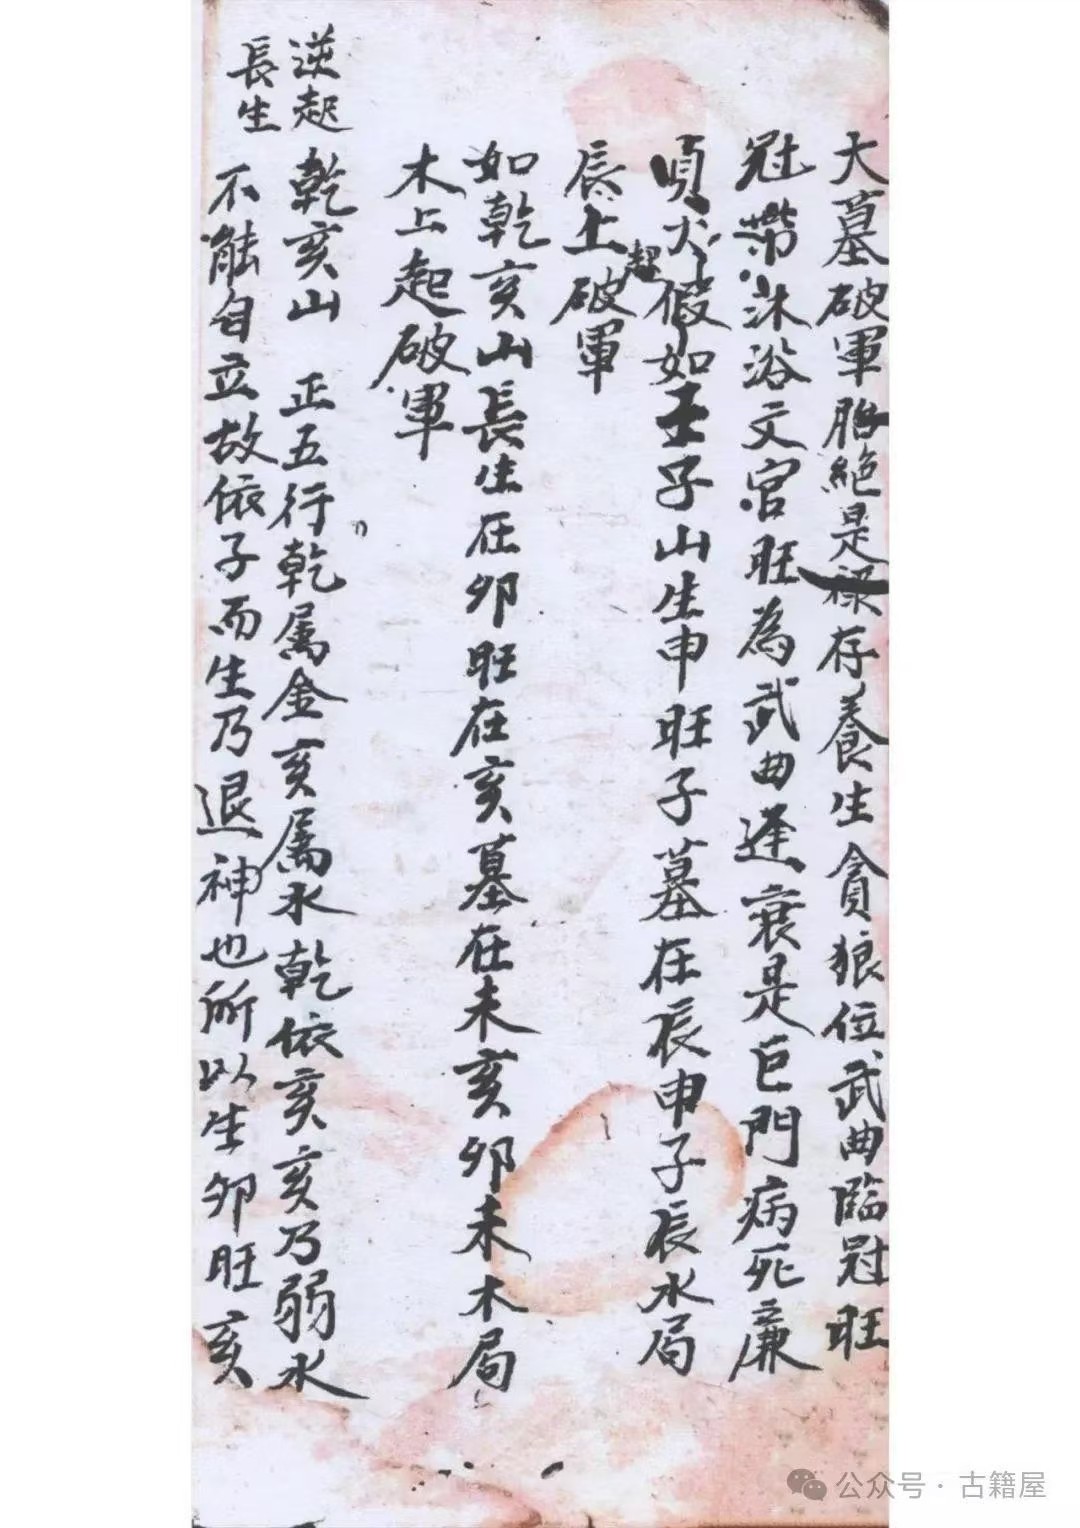 大墓破軍胎絕是祿存養生貪狼位武曲臨冠旺
冠帶沐浴文宮旺為武曲逢衰是巨門病死廉
火假如壬子山生申旺子墓在辰申子辰水局
辰上起破軍
如乾亥山長生在卯旺在亥墓在未亥卯未木局
木上起破軍
逆起
長生
乾亥山 正五行乾属金亥属水乾依亥亥乃弱水
不能自立故依子而生乃退神也所以生卯旺亥
公众号·古籍屋